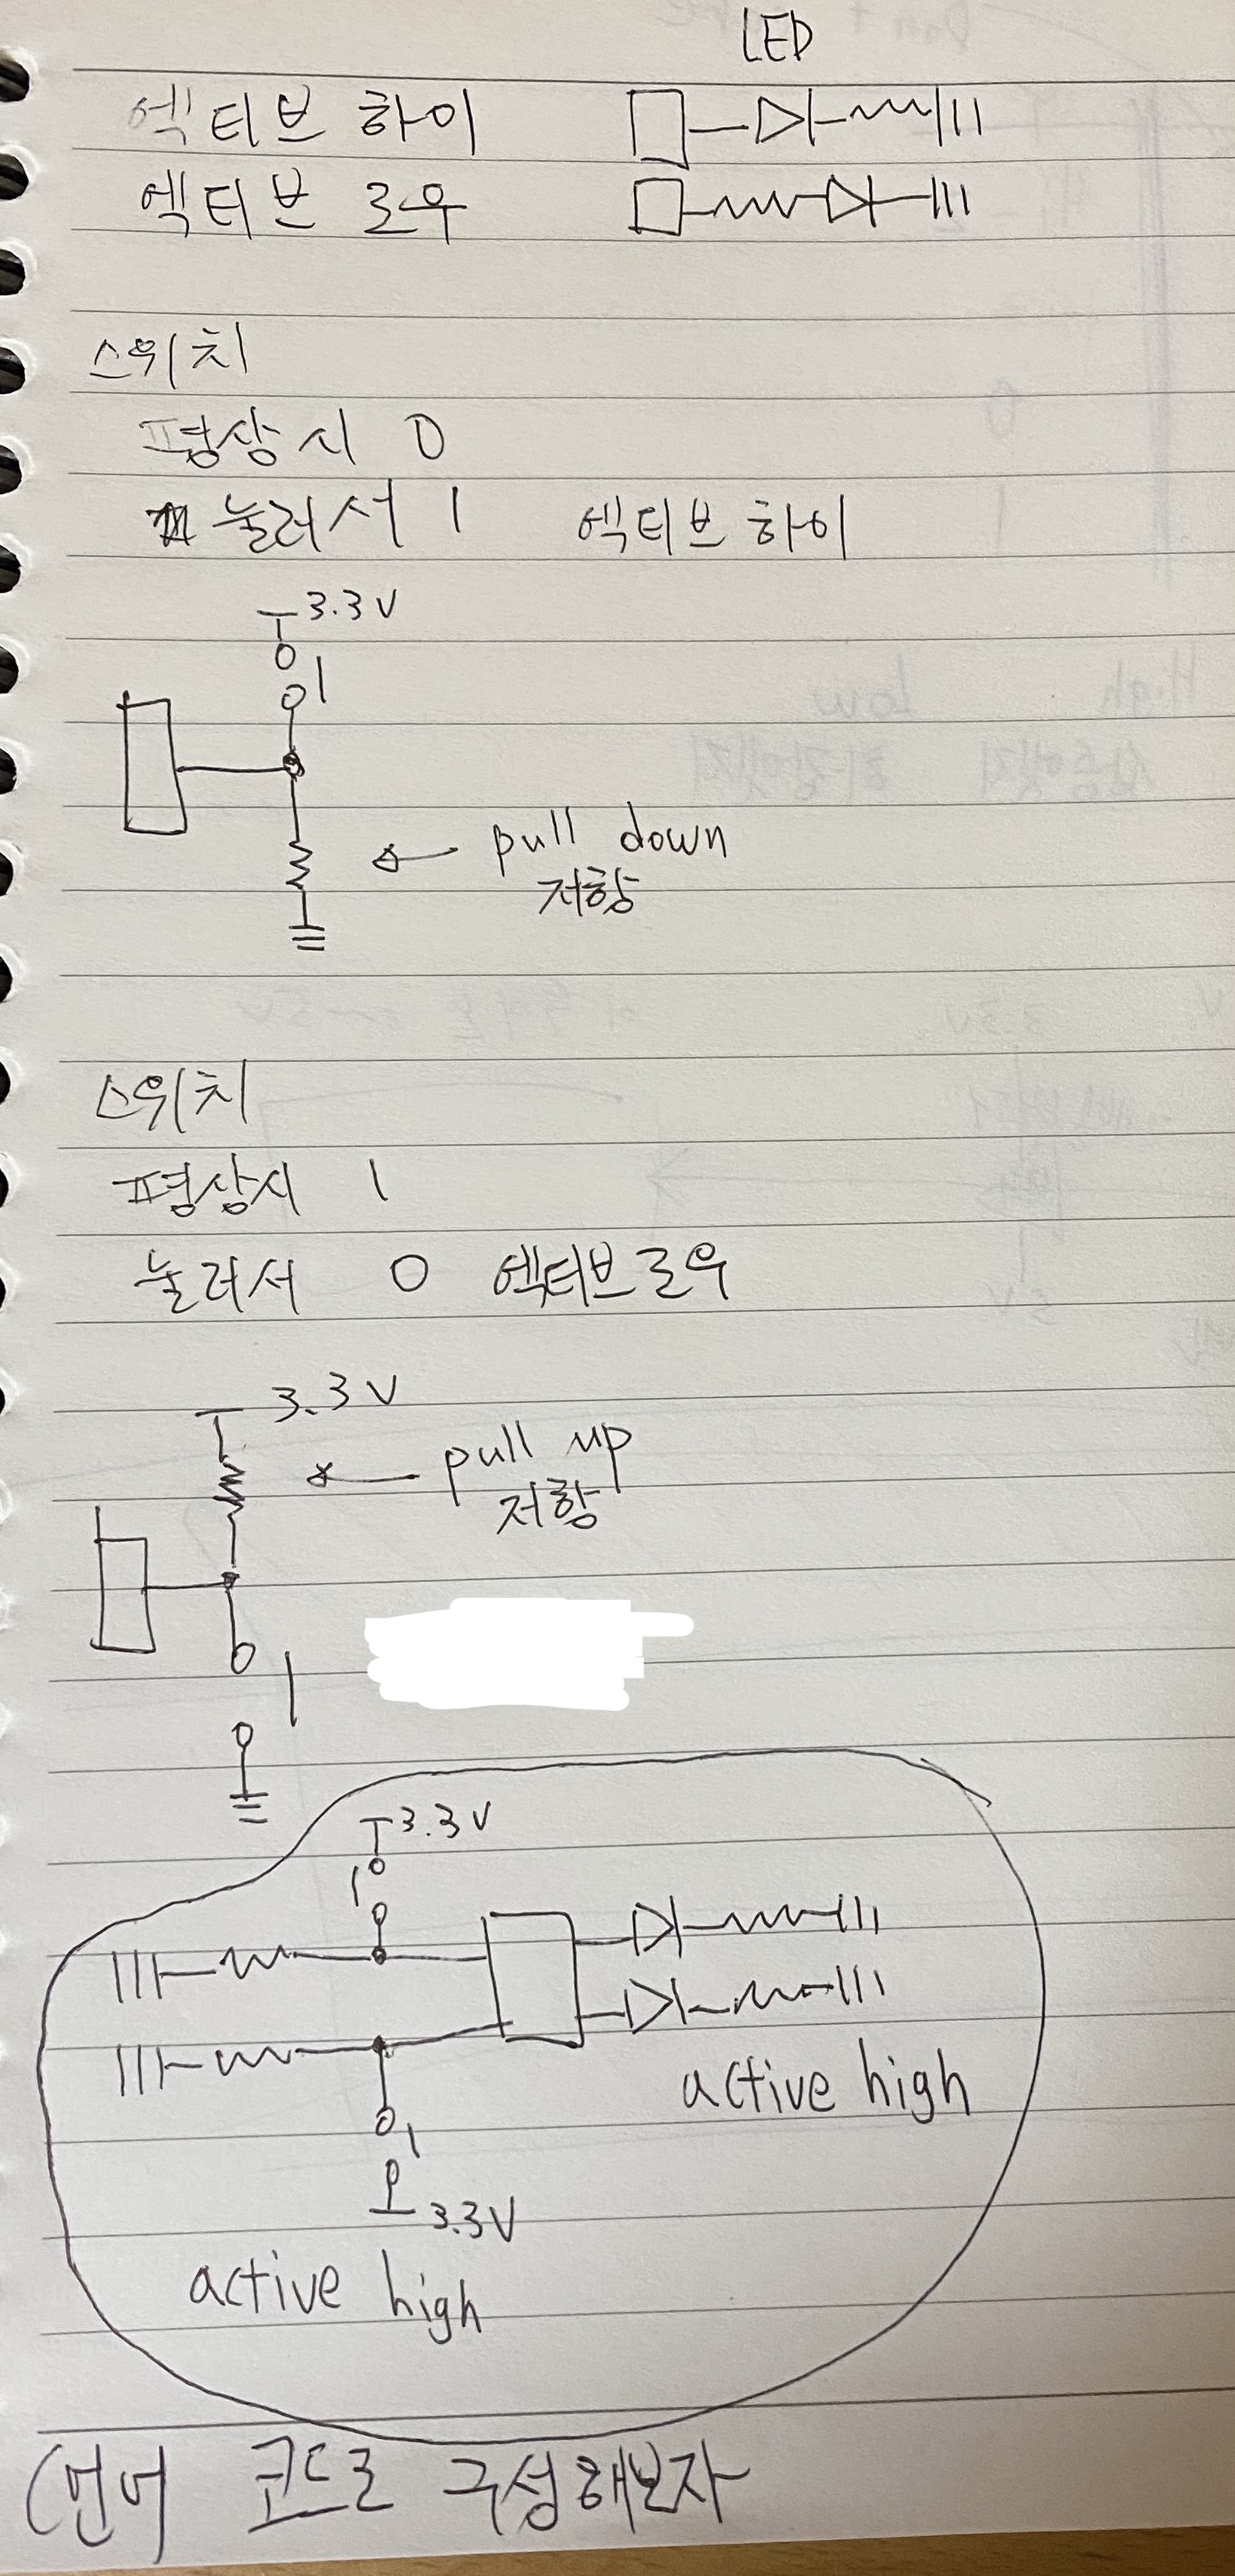 LED
엑티브 하이
엑티브 로우
스위치
평상시 0
눌러서 1 엑티브 하이
3.3V
pull down
저항
스위치
평상시 1
눌러서 0 엑티브로우
3.3V
pull up
저항
3.3V
active high
3.3V
active high
C언어 코드로 구성해보자